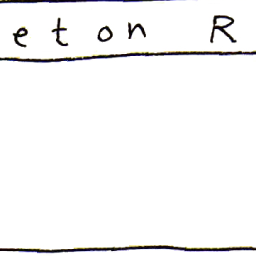 eton R